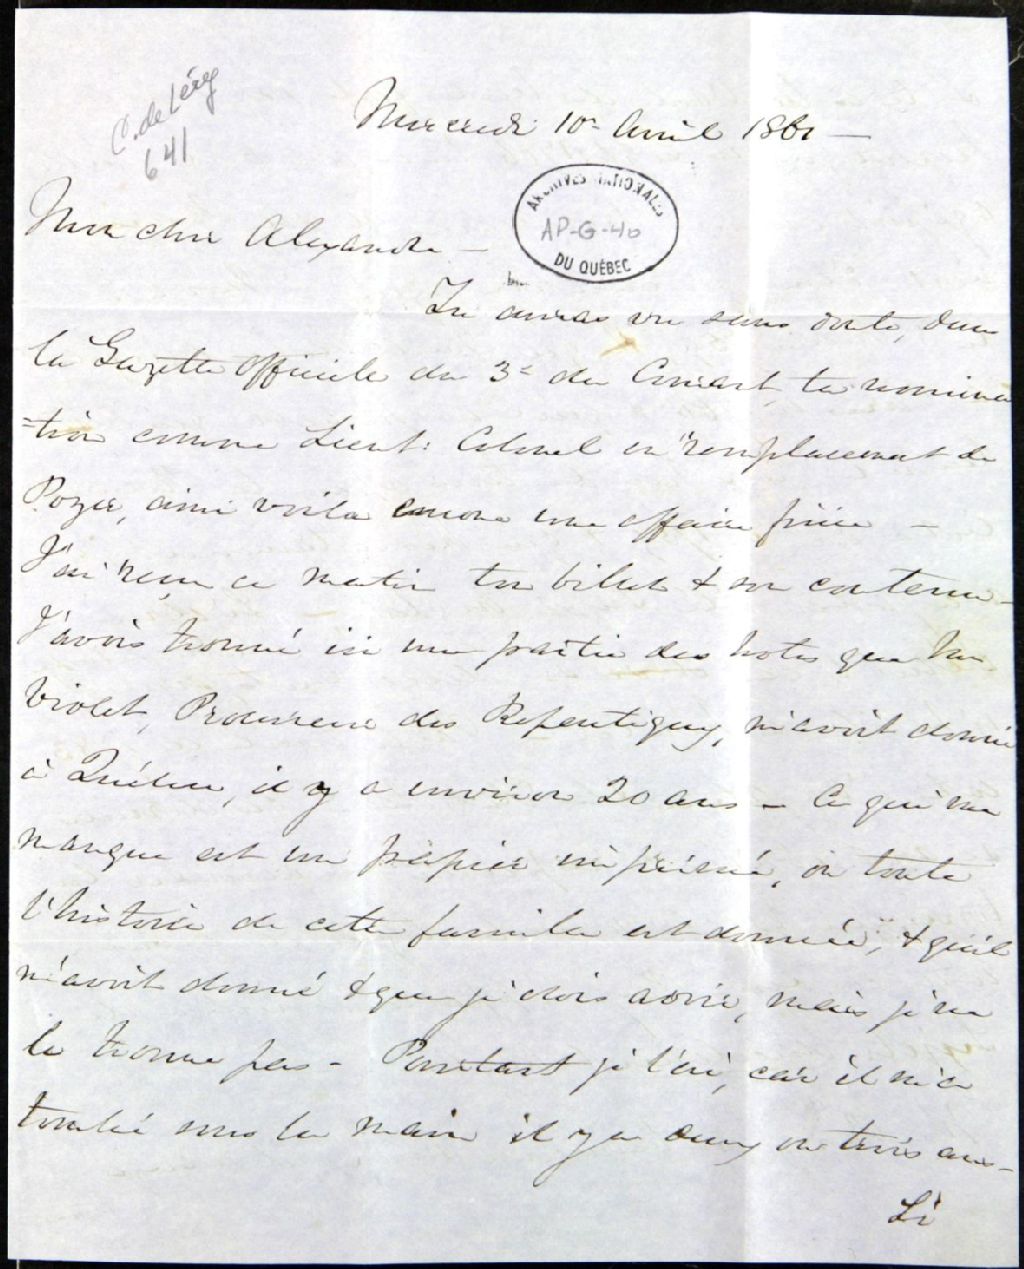 C. de Léry
641
Mercredi 10 Avril 1861 —
Mon cher Alexandre —
ARCHIVES NATIONALES
AP-G-40
DU QUÉBEC
Tu auras vu sans doute, dans
la Gazette Officielle du 3e du Courant, ta nomina
-tion comme Lieut: Colonel en remplacement de
Pozer, ainsi voila encore une affaire finie —
J'ai reçu ce matin ton billet & son contenu —
J'avois trouvé ici une partie des notes que Mr
Violet, Procureur des Repentigny, m'avoit donné
à Québec, il y a environ 20 ans — Ce qui me
manque est un papier imprimé, où toute
l'histoire de cette famille est donnée, & qu'il
m'avoit donné & que je dois avoir, mais je ne
le trouve pas — Pourtant je l'ai, car il m'a
tombé sous la main il y a deux ou trois ans —
Si